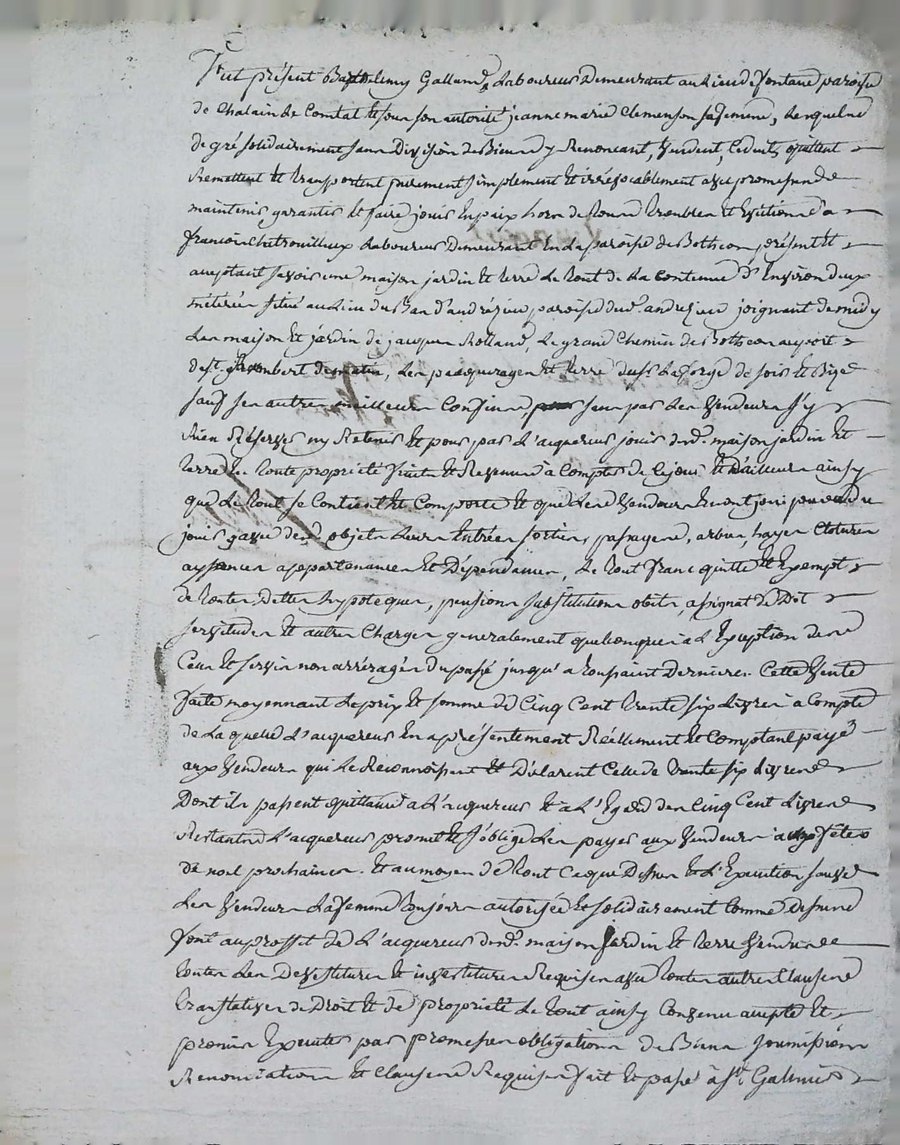 fut présent Barthelemy Galland, Laboureur Demeurant au Lieu de fontane paroisse
de Chalain Le Comtal et sous son autorité jeanne marie Clemenson sa femme, Lesquels
de gré solidairement sans Division de Biens y Renoncant, Vendent, Cedent, quittent
Remettent et transportent purement simplement et irrévocablement avec promesse de
maintenir garantir et faire jouir En paix hors de tous troubles et Evictions a
françois Chetrouilleux Laboureur Demeurant En La paroisse de Botheon présent et
acceptant savoir une maison jardin et terre Le tout de La contenue d'Environ deux
métérées situé au Lieu du Bas d'andrézieu paroisse dud. andrezieu joignant de midy
Les maison et jardin de jacques Rolland, Le grand Chemin de Botheon au port
de st. Rambert de matin, Les pacquerages et terre du sr. Laforge de soir et Bize
sauf ses autres meilleurs Confins, sans par Les Vendeurs s'y
Rien Réserver ny Retenir et pour par L'acquereur jouir desd. maison jardin Et
terre En toute propriété fruits et Revenus à Compter de Ce jour Et d'ailleurs ainsy
que Le tout se Contient Et Comporte Et que Lesd Vendeurs En ont joui pu ou du
jouir avec desd objets Leurs Entrées sorties, passages, arbres, hayes Clotures
aysances appartenances Et Dépendances, Le tout franc quitte Et Exempt
de toutes Dettes hypoteques, pensions substitutions obits, assignat De Dot
servitudes Et autres Charges generalement quelconques à L'Exception des
Cens Et servis non arréragés du passé jusqu'a toussaint Derniere. Cette Vente
faite moyennant Le prix Et somme De Cinq Cent trente six Livres à Compte
de Laquelle L'acquereur En a présentement Réellement Et Comptant payé
aux Vendeurs qui Le Reconnoissent Et Déclarent Celle de trente six Livres
Dont ils passent quittance a L'acquereur Et a L'Egard des Cinq Cent Livres
Restantes L'acquereur promet Et s'oblige Les payer aux Vendeurs aux fêtes
de noel prochaines. Et au moyen de tout Ce que Dessus Et L'Execution sauve
Les Vendeurs La femme toujours autorisée Et solidairement Comme Dessus
font au proffit De L'acquereur desd. maison jardin Et terre Vendus
toutes Les Devestitures Et investitures Requises avec toutes autres Clauses
translatives de Droit Et de propriété Le tout ainsy Convenu accepté Et
promis Executer par promesses obligations de Biens soumissions
Renonciations Et Clauses Requises fait Et passé à st Galmier